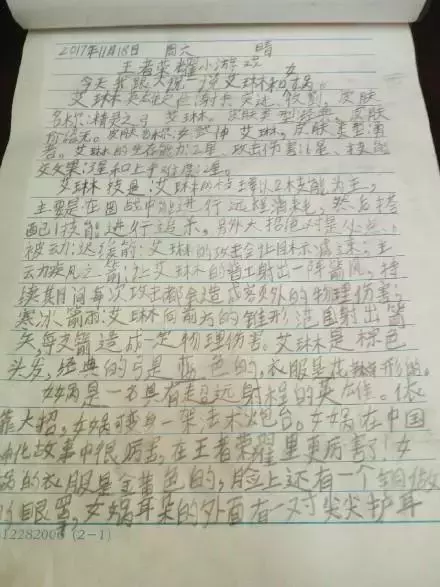 2017年11月18日 周六 晴
王者荣耀小游戏
今天我跟大家说一说艾琳和女娲。
艾琳 英雄定位:射手 突进、收割,皮肤
名称:精灵之弓 艾琳。皮肤类型:经典,皮肤
价格:无。皮肤名称:女武神 艾琳,皮肤类型:
艾琳的生存能力2星、攻击伤害星、技能
效果:3星和上手难度:2星。
艾琳技具:艾琳以2技能为主,
主要是在团战中能进行远程消耗,然后搭
配1技能进行追杀,另外大招绝对是
被动:迟缓箭:艾琳的攻击会让目标减速;主
动:疾风之箭:让艾琳的普攻射出一阵箭风,持
续其间每次攻击都会造成额外的物理伤害;
寒冰箭雨:艾琳向前方的锥形范围射出箭
矢,每支箭造成一定物理伤害。艾琳是棕色
头发,经典的弓是蓝色的,衣服是花形的。
女娲是一名具有超远射程的英雄。依
靠大招,女娲可变身一架法术炮台。女娲在中国
神化故事中很厉害,在王者荣耀里更厉害了!女
娲的衣服是金黄色的,脸上还有一个铜做
的眼罩,女娲耳朵的外面有一对尖尖护耳
12282006 (2-1)